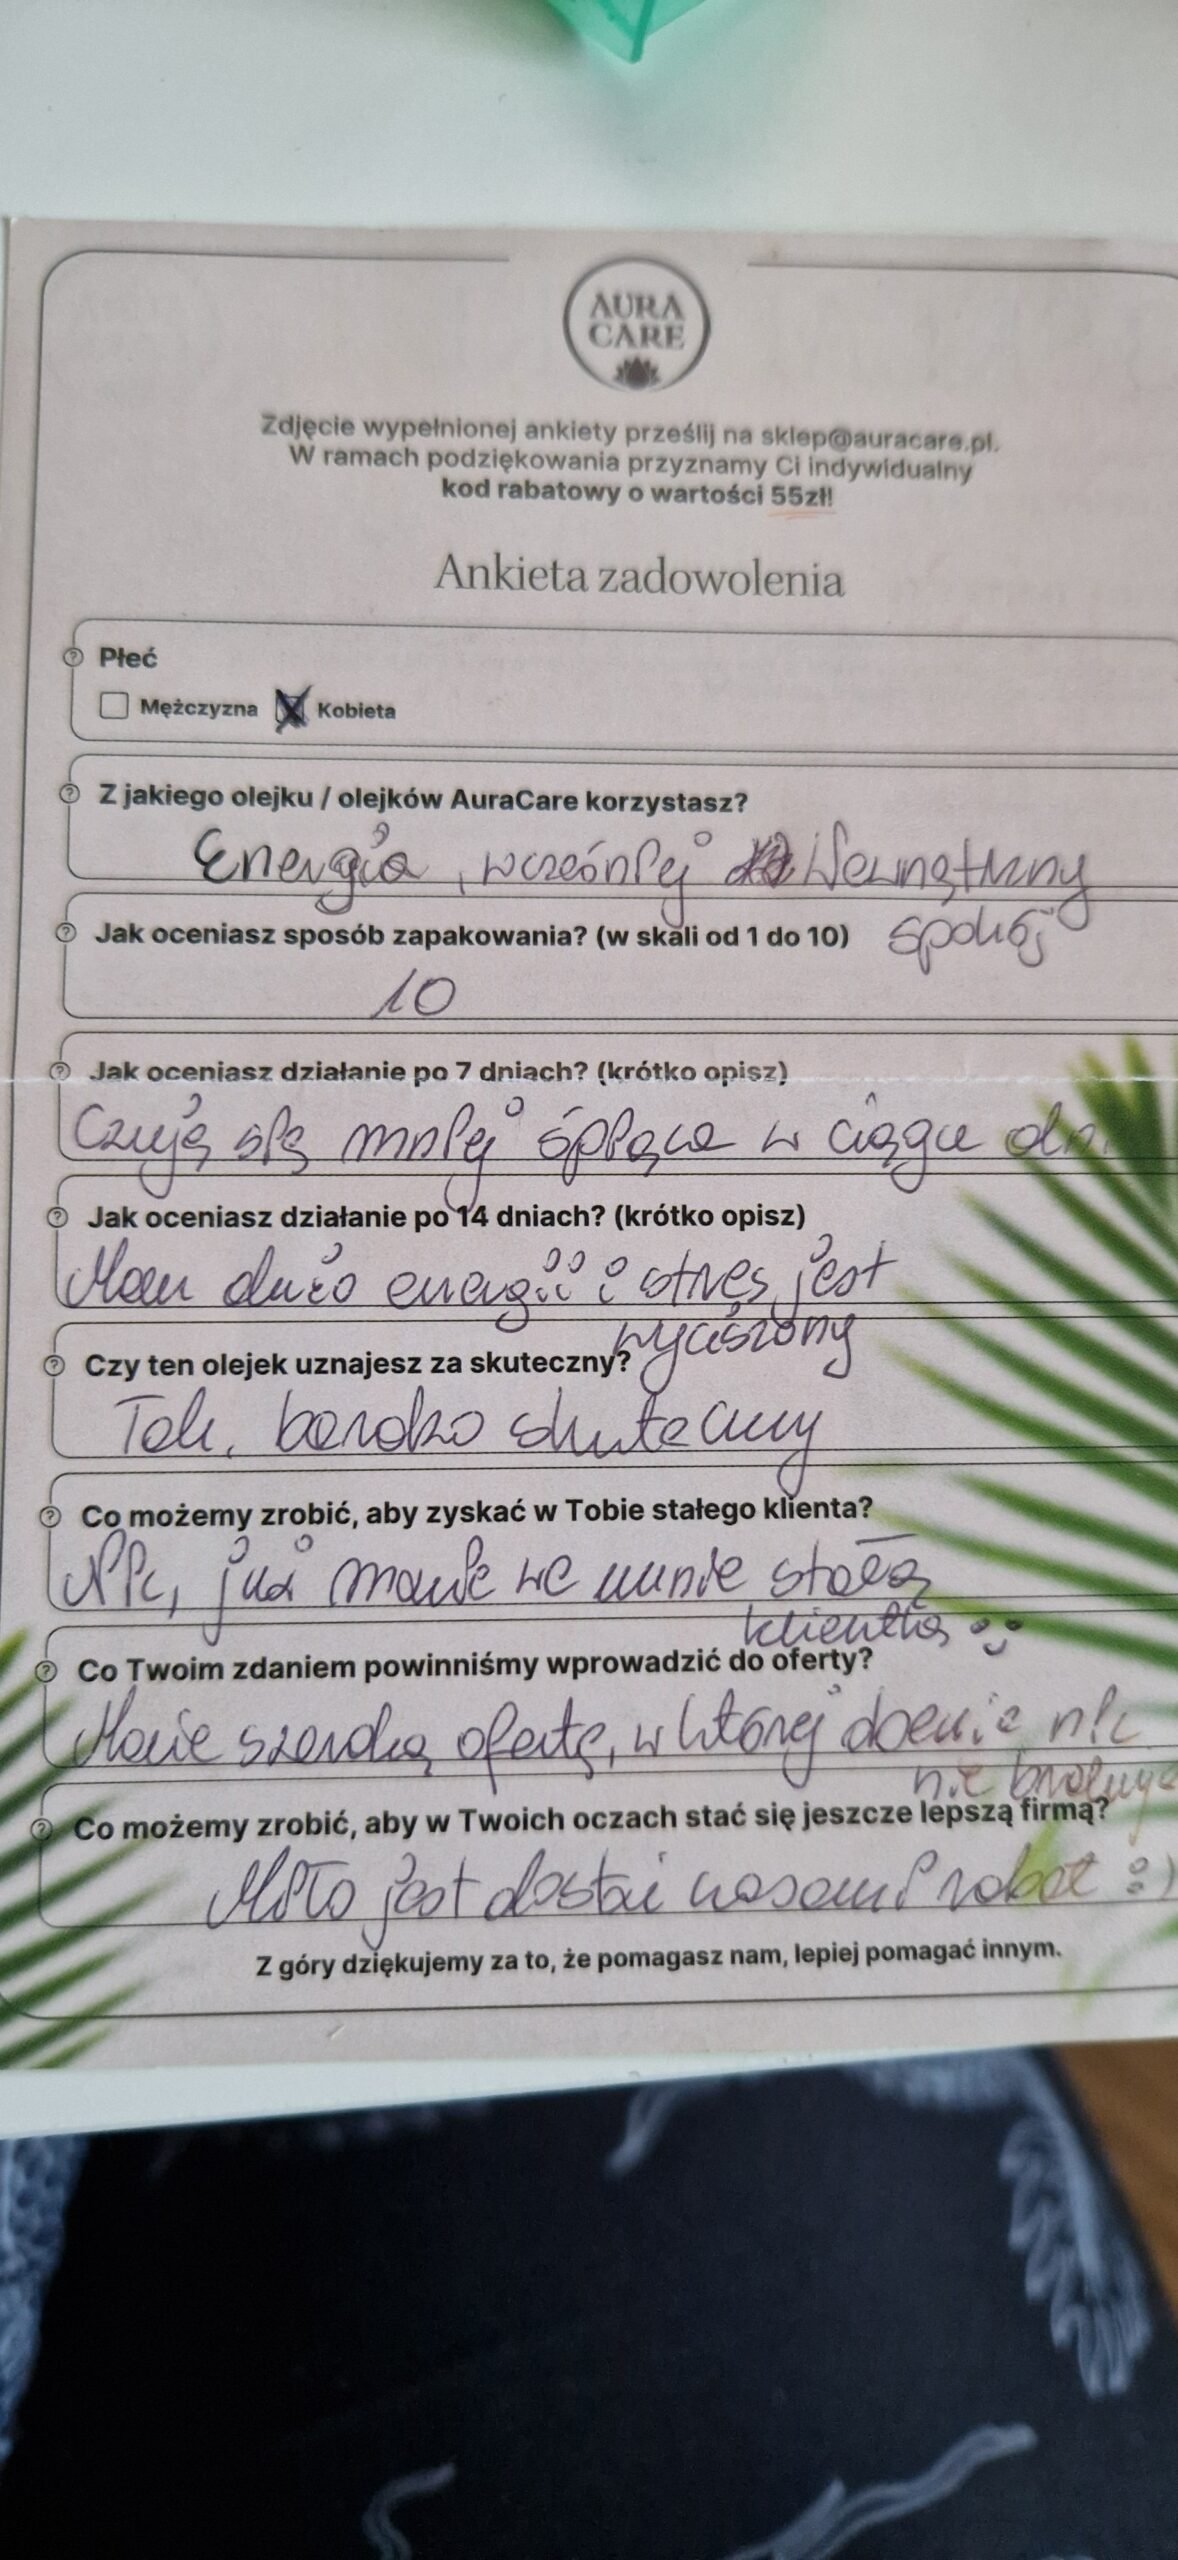 AURA
CARE
Zdjęcie wypełnionej ankiety prześlij na sklep@auracare.pl.
W ramach podziękowania przyznamy Ci indywidualny
kod rabatowy o wartości 55zł!
Ankieta zadowolenia
Płeć
Mężczyzna Kobieta
Z jakiego olejku / olejków AuraCare korzystasz?
Energia, wcześniej Wewnętrzny
spokój
Jak oceniasz sposób zapakowania? (w skali od 1 do 10)
10
Jak oceniasz działanie po 7 dniach? (krótko opisz)
Czuję się mniej śpiąca w ciągu
Jak oceniasz działanie po 14 dniach? (krótko opisz)
Mam dużo energii i stres jest
wyciszony
Czy ten olejek uznajesz za skuteczny?
Tak, bardzo skuteczny
Co możemy zrobić, aby zyskać w Tobie stałego klienta?
Nic, już macie we mnie stałą
klientkę :)
Co Twoim zdaniem powinniśmy wprowadzić do oferty?
Macie szeroką ofertę, w której nic
nie brakuje
Co możemy zrobić, aby w Twoich oczach stać się jeszcze lepszą firmą?
Miło jest dostać czasami rabat :)
Z góry dziękujemy za to, że pomagasz nam, lepiej pomagać innym.